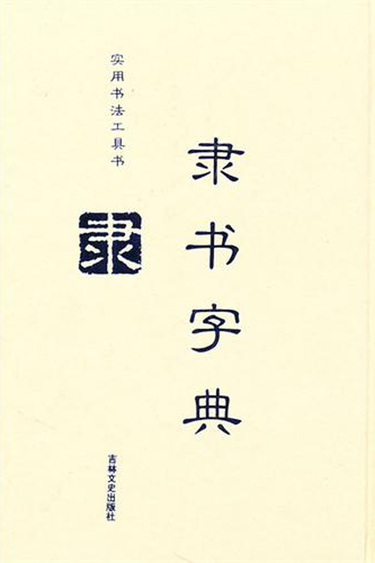 实用书法工具书
隶
隶书字典
吉林文史出版社